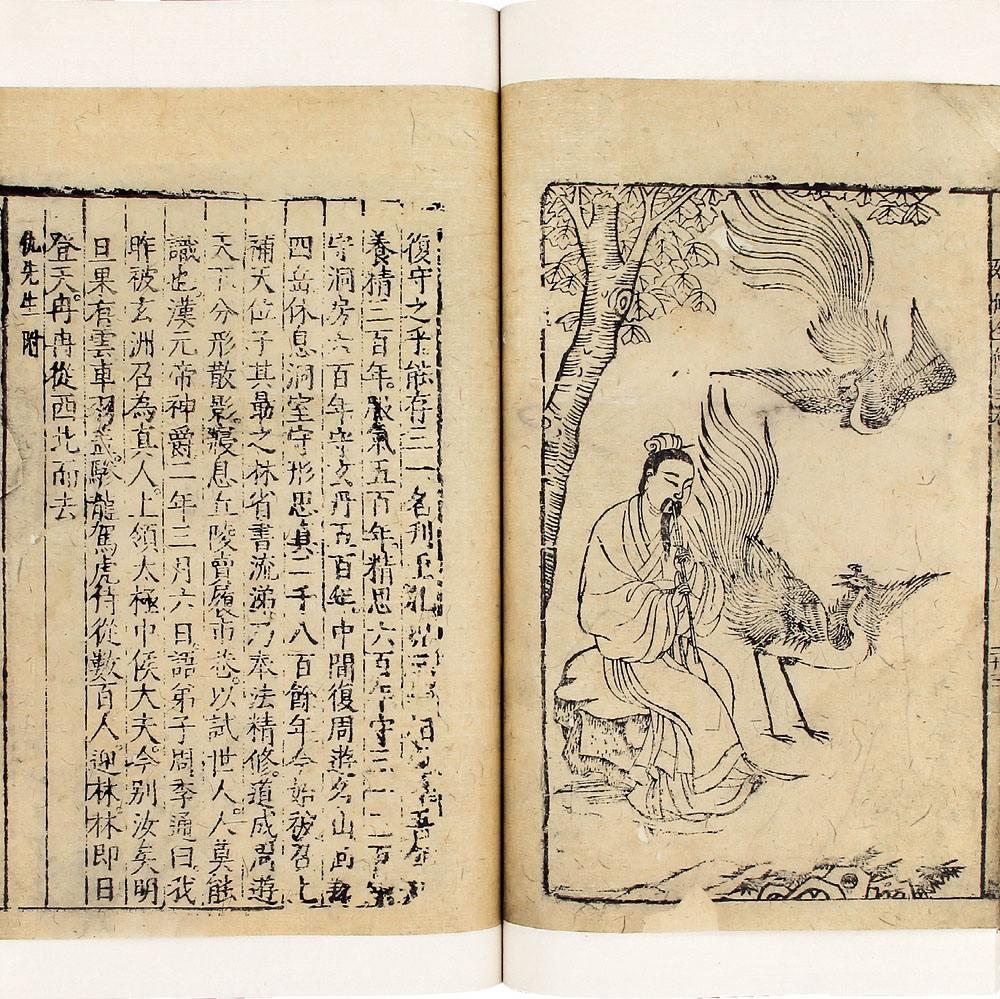 復守之乎能存三一名刊玉札
養精三百年。服氣五百年精思六百年守三一三百年
守洞房六百年守玄丹五百年中間復周遊名山回看
四岳休息洞室守形思真二千八百餘年今始被召上
補天位子其勗之林省書流涕乃奉法精修道成周遊
天下分形散影。寢息丘陵賣履市巷。以試世人。人莫能
識也。漢元帝神爵二年三月六日。語弟子周季通曰我
昨被玄洲召為真人。上領太極中候大夫。今別汝矣明
日果有雲車羽蓋。驂龍駕虎。侍從數百人。迎林。林即日
登天。冉冉從西北而去
仇先生附